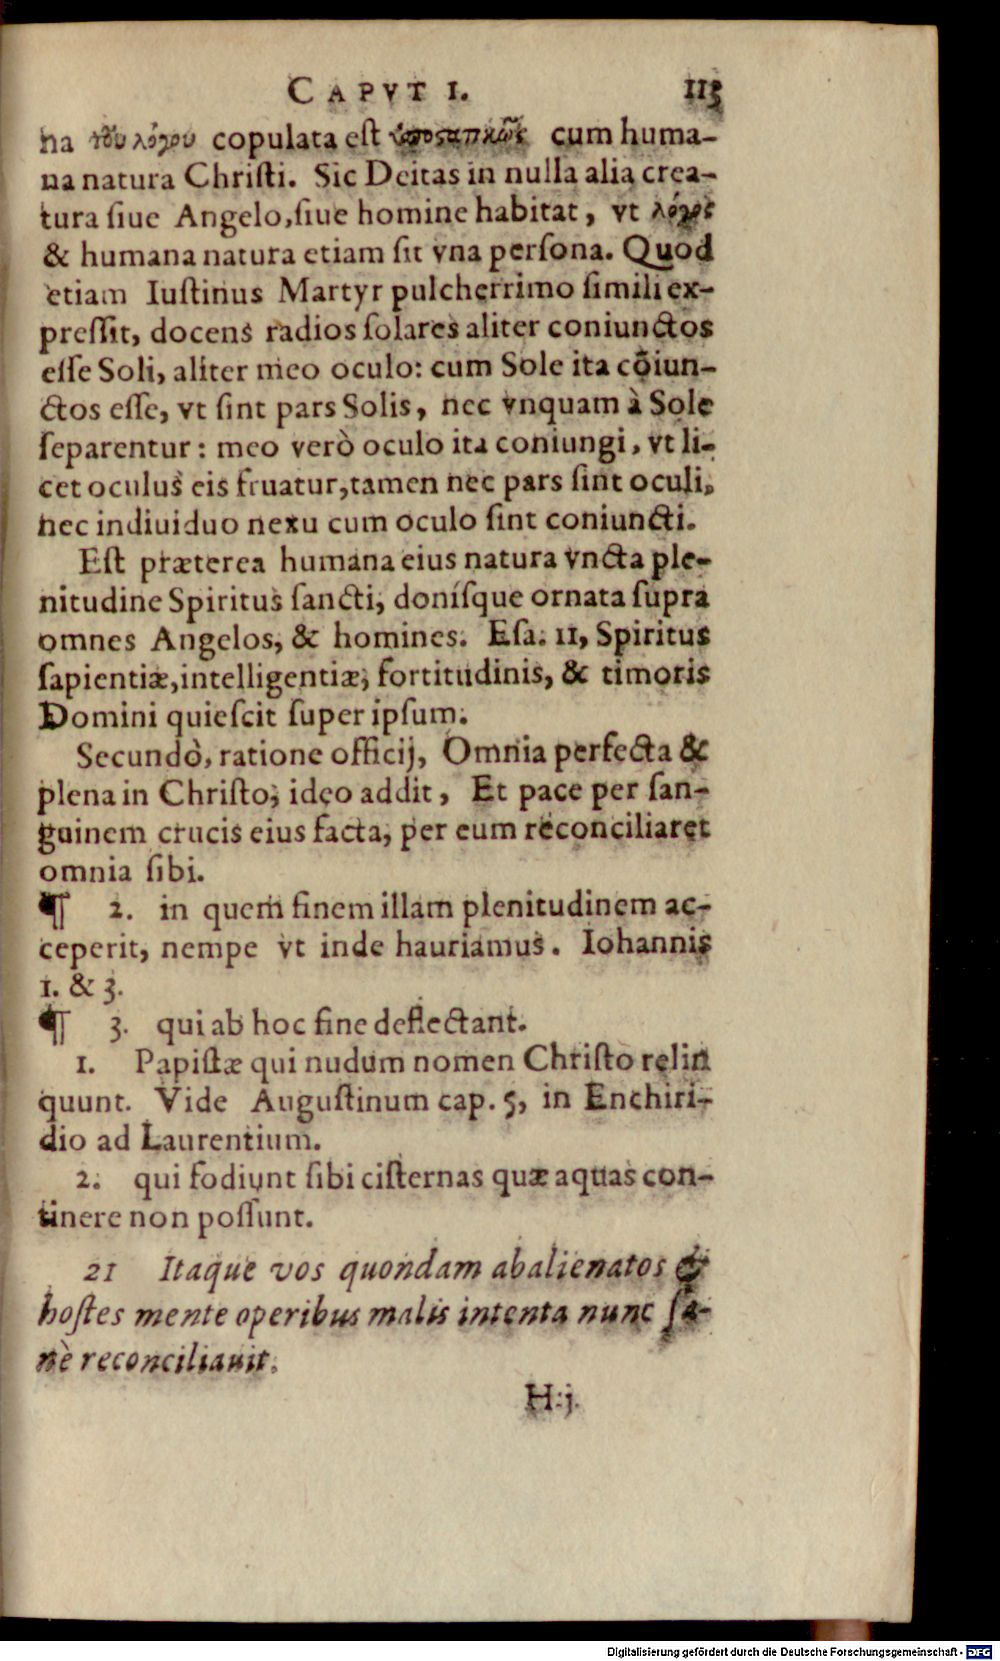 CAPVT I. 113
na τοῦ λόγου copulata est ὑποστατικῶς cum huma-
na natura Christi. Sic Deitas in nulla alia crea-
tura siue Angelo, siue homine habitat, vt λόγος
& humana natura etiam sit vna persona. Quod
etiam Iustinus Martyr pulcherrimo simili ex-
pressit, docens radios solares aliter coniunctos
esse Soli, aliter meo oculo: cum Sole ita cōiun-
ctos esse, vt sint pars Solis, nec vnquam à Sole
separentur: meo verò oculo ita coniungi, vt li-
cet oculus eis fruatur, tamen nec pars sint oculi,
nec indiuiduo nexu cum oculo sint coniuncti.
Est præterea humana eius natura vncta ple-
nitudine Spiritus sancti, donísque ornata supra
omnes Angelos, & homines. Esa. 11, Spiritus
sapientiæ, intelligentiæ, fortitudinis, & timoris
Domini quiescit super ipsum.
Secundò, ratione officij, Omnia perfecta &
plena in Christo, ideo addit, Et pace per san-
guinem crucis eius facta, per eum reconciliaret
omnia sibi.
¶ 2. in quem finem illam plenitudinem ac-
ceperit, nempe vt inde hauriamus. Iohannis
1. & 3.
¶ 3. qui ab hoc fine deflectant.
1. Papistæ qui nudum nomen Christo relin
quunt. Vide Augustinum cap. 5, in Enchiri-
dio ad Laurentium.
2. qui fodiunt sibi cisternas quæ aquas con-
tinere non possunt.
21 Itaque vos quondam abalienatos &
hostes mente operibus malis intenta nunc sa-
nè reconciliauit.
H.j.
Digitalisierung gefördert durch die Deutsche Forschungsgemeinschaft - DFG